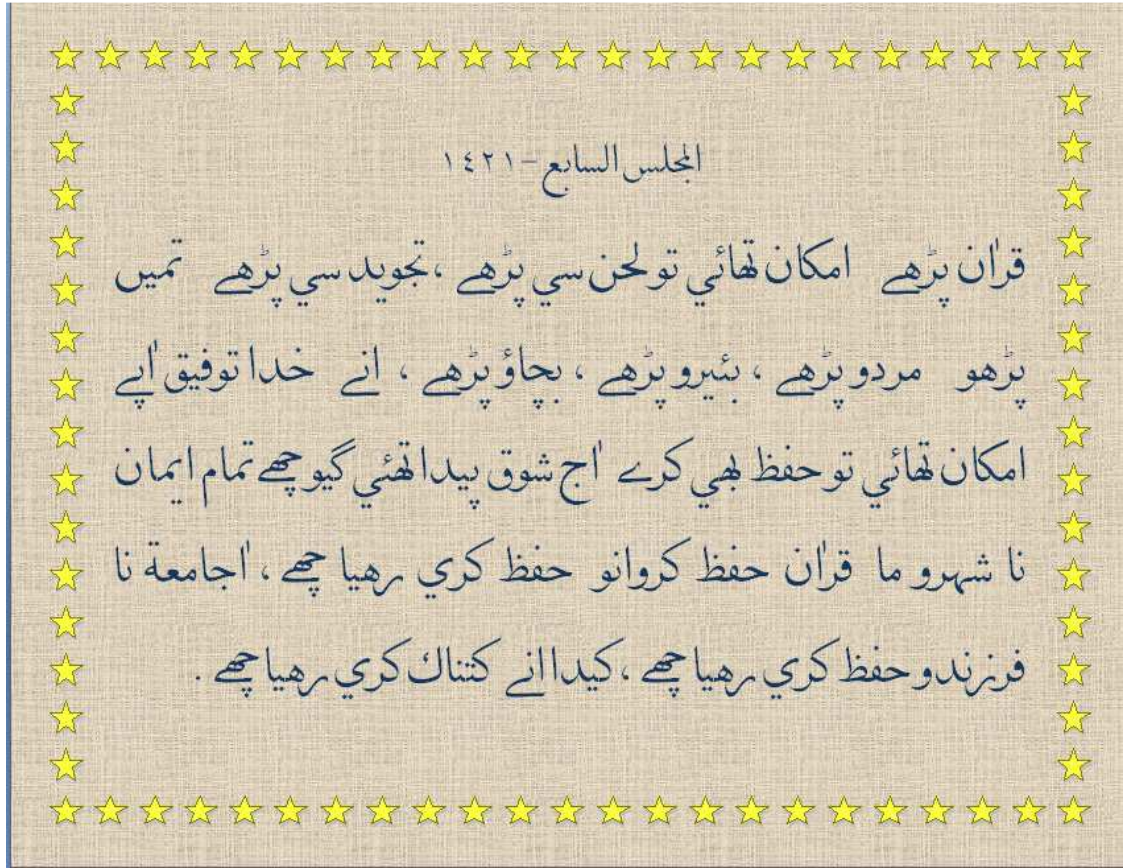 المجلس السابع - ١٤٢١
قرأن پڑهے امكان تهائي تو لحن سي پڑهے ، تجويد سي پڑهے تميں
پڑهو مردو پڑهے ، بئيرو پڑهے ، بچاؤ پڑهے ، انے خدا توفيق أپے
امكان تهائي تو حفظ بهي كرے أج شوق پيدا تهئي گيو چھے تمام ايمان
نا شهرو ما قرأن حفظ كروانو حفظ كري رهيا چھے ، أجامعة نا
فرزندو حفظ كري رهيا چھے ، كيدا انے كتناك كري رهيا چھے .